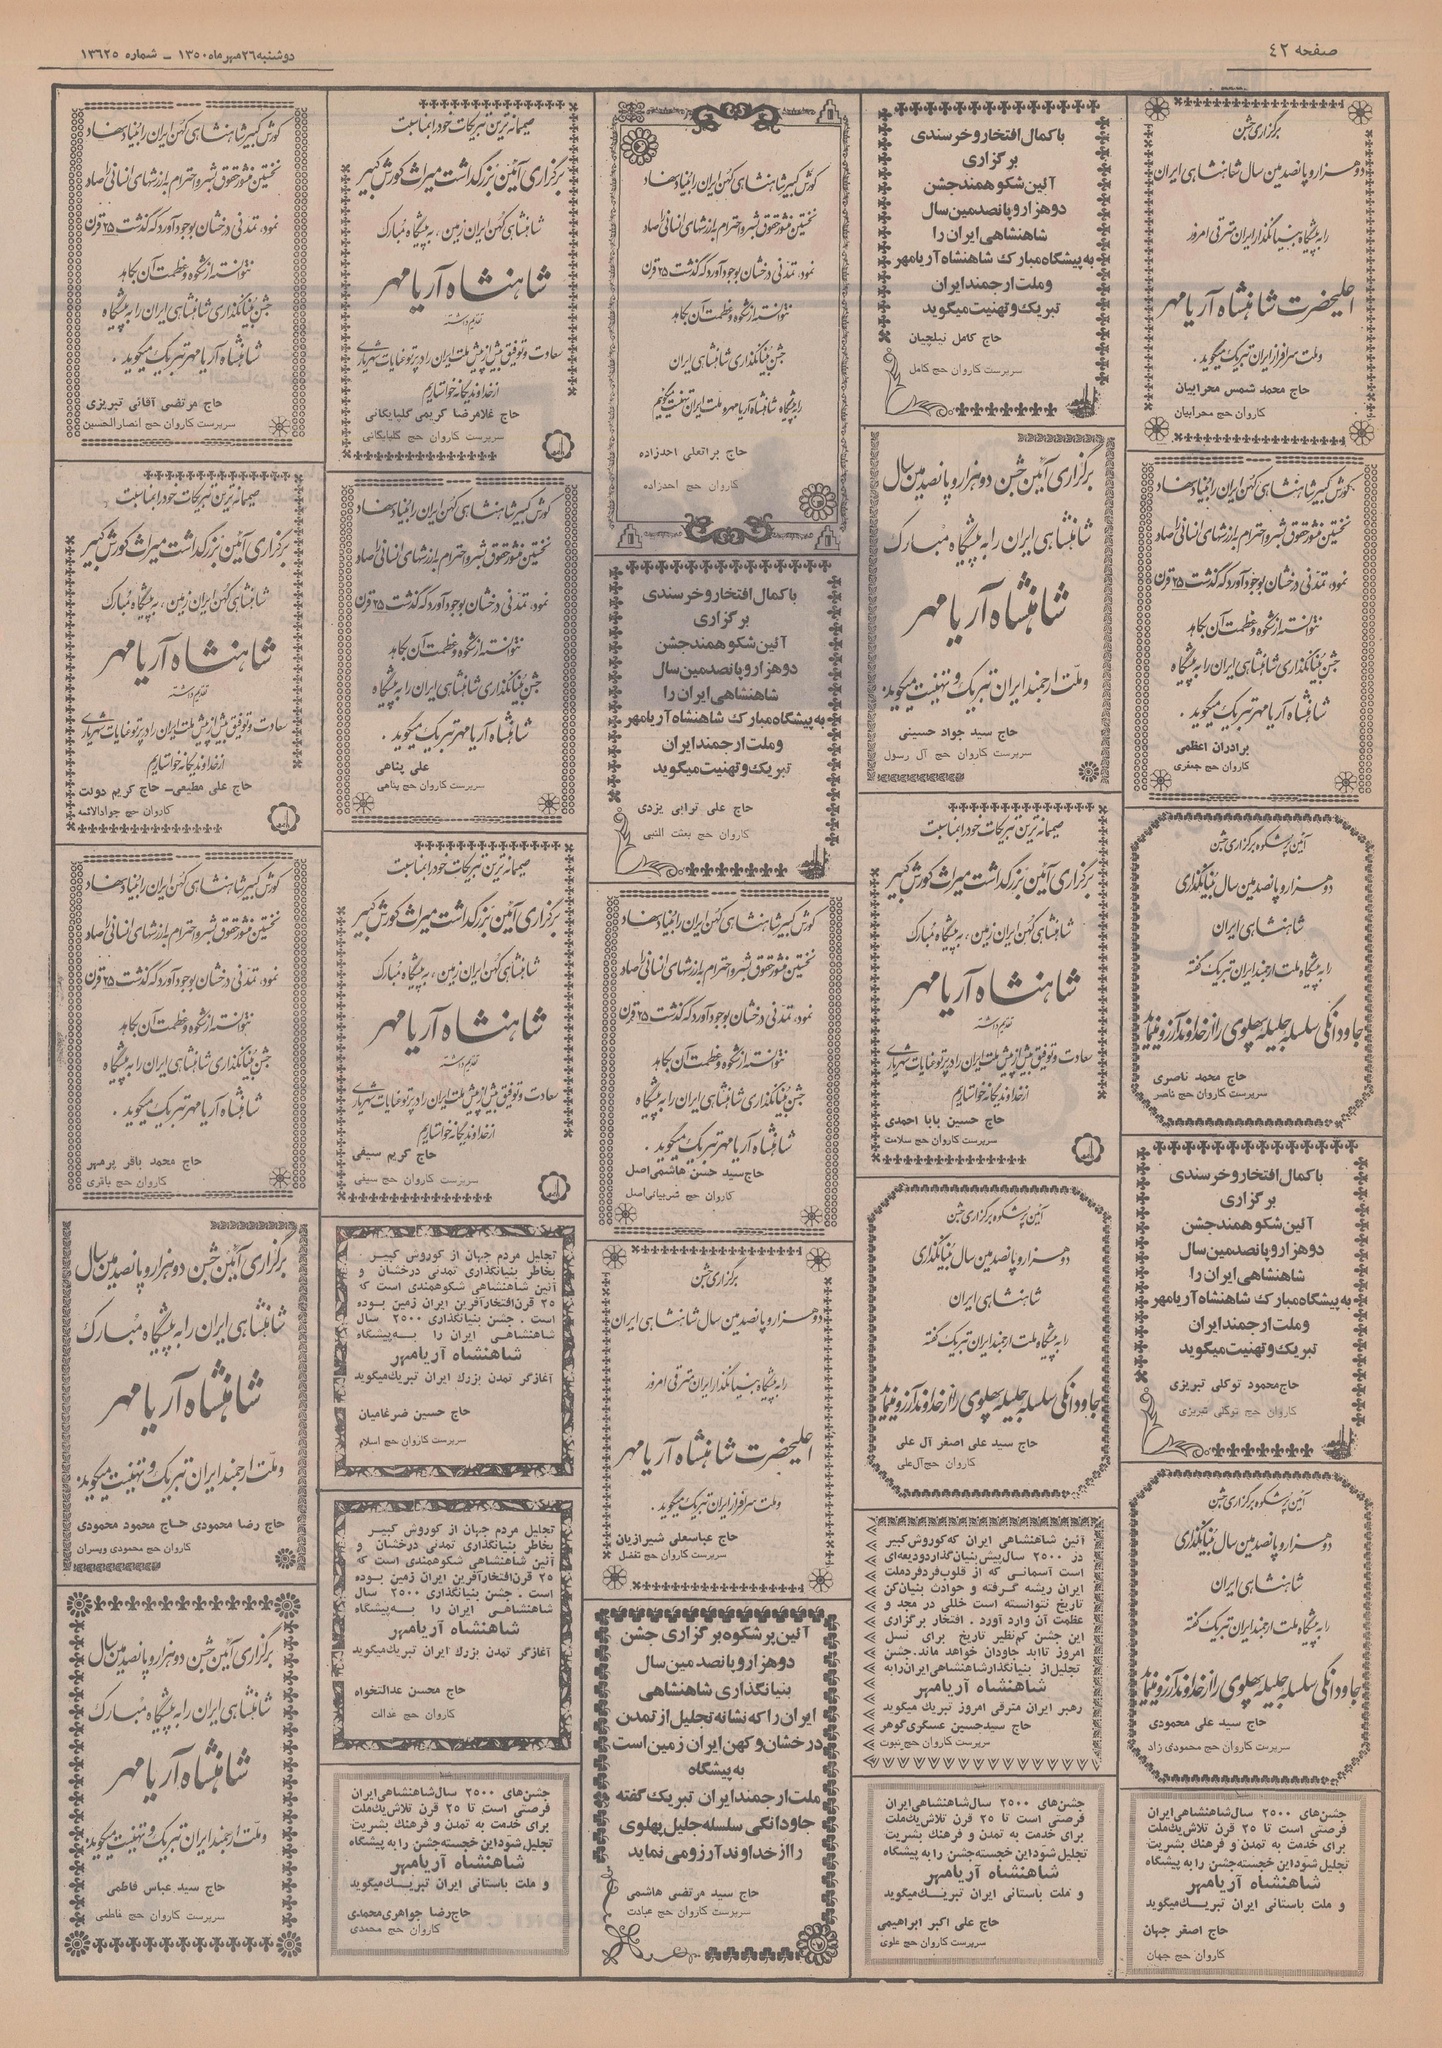 صفحه ٤٢
دوشنبه ٢٦ مهر ماه ١٣٥٠ ـ شماره ١٣٦٢٥
برگزاری جشن
دو هزار و پانصدمین سال شاهنشاهی ایران
را به پیشگاه بنیانگذار ایران مترقی امروز
اعلیحضرت شاهنشاه آریامهر
و ملت سرافراز ایران تبریک میگوید .
حاج محمد شمس محرابیان
کاروان حج محرابیان
کورش کبیر شاهنشاهی کهن ایران را بنیاد نهاد
نخستین منشور حقوق بشر و احترام به ارزشهای انسانی را صادر
نمود، تمدنی درخشان بوجود آورد که گذشت ٢٥ قرن
نتوانسته از شکوه و عظمت آن بکاهد
جشن بنیانگذاری شاهنشاهی ایران را به پیشگاه
شاهنشاه آریامهر تبریک میگوید .
برادران اعظمی
کاروان حج جعفری
آئین پرشکوه برگزاری جشن
دو هزار و پانصدمین سال بنیانگذاری
شاهنشاهی ایران
را به پیشگاه ملت ارجمند ایران تبریک گفته
جاودانگی سلسله جلیله پهلوی را از خداوند آرزو مینماید
حاج محمد ناصری
سرپرست کاروان حج ناصر
با کمال افتخار و خرسندی
برگزاری
آئین شکوهمند جشن
دو هزار و پانصدمین سال
شاهنشاهی ایران را
به پیشگاه مبارک شاهنشاه آریامهر
و ملت ارجمند ایران
تبریک و تهنیت میگوید
حاج محمود توکلی تبریزی
کاروان حج توکلی تبریزی
آئین پرشکوه برگزاری جشن
دو هزار و پانصدمین سال بنیانگذاری
شاهنشاهی ایران
را به پیشگاه ملت ارجمند ایران تبریک گفته
جاودانگی سلسله جلیله پهلوی را از خداوند آرزو مینماید
حاج سید علی محمودی
سرپرست کاروان حج محمودی زاد
جشن‌های ٢٥٠٠ سال شاهنشاهی ایران
فرصتی است تا ٢٥ قرن تلاش یک ملت
برای خدمت به تمدن و فرهنگ بشریت
تجلیل شود این خجسته جشن را به پیشگاه
شاهنشاه آریامهر
و ملت باستانی ایران تبریک میگوید
حاج اصغر جهان
کاروان حج جهان
با کمال افتخار و خرسندی
برگزاری
آئین شکوهمند جشن
دو هزار و پانصدمین سال
شاهنشاهی ایران را
به پیشگاه مبارک شاهنشاه آریامهر
و ملت ارجمند ایران
تبریک و تهنیت میگوید
حاج کامل نیلچیان
سرپرست کاروان حج کامل
برگزاری آئین جشن دو هزار و پانصدمین سال
شاهنشاهی ایران را به پیشگاه مبارک
شاهنشاه آریامهر
و ملت ارجمند ایران تبریک و تهنیت میگوید:
حاج سید جواد حسینی
سرپرست کاروان حج آل رسول
صمیمانه ترین تبریکات خود را بمناسبت
برگزاری آئین بزرگداشت میراث کورش کبیر
شاهنشاهی کهن ایران زمین ، به پیشگاه مبارک
شاهنشاه آریامهر
تقدیم داشته
سعادت و توفیق بیش از پیش ملت ایران را در پرتو عنایات شهریاری
از خداوند یگانه خواستاریم
حاج حسین بابا احمدی
سرپرست کاروان حج سلامت
آئین پرشکوه برگزاری جشن
دو هزار و پانصدمین سال بنیانگذاری
شاهنشاهی ایران
را به پیشگاه ملت ارجمند ایران تبریک گفته
جاودانگی سلسله جلیله پهلوی را از خداوند آرزو مینماید
حاج سید علی اصغر آل علی
کاروان حج آل علی
آئین شاهنشاهی ایران که کوروش کبیر
در ٢٥٠٠ سال پیش بنیان گذارد ودیعه‌ای
است آسمانی که از قلوب فرد فرد ملت
ایران ریشه گرفته و حوادث بنیان کن
تاریخ نتوانسته است خللی در مجد و
عظمت آن وارد آورد . افتخار برگزاری
این جشن کم‌نظیر تاریخ برای نسل
امروز تا ابد جاودان خواهد ماند. جشن
تجلیل از بنیانگذار شاهنشاهی ایران را به
شاهنشاه آریامهر
رهبر ایران مترقی امروز تبریک میگوید
حاج سید حسین عسگری گوهر
سرپرست کاروان حج نبوت
جشن‌های ٢٥٠٠ سال شاهنشاهی ایران
فرصتی است تا ٢٥ قرن تلاش یک ملت
برای خدمت به تمدن و فرهنگ بشریت
تجلیل شود این خجسته جشن را به پیشگاه
شاهنشاه آریامهر
و ملت باستانی ایران تبریک میگوید
حاج علی اکبر ابراهیمی
سرپرست کاروان حج علوی
کورش کبیر شاهنشاهی کهن ایران را بنیاد نهاد
نخستین منشور حقوق بشر و احترام به ارزشهای انسانی را صادر
نمود، تمدنی درخشان بوجود آورد که گذشت ٢٥ قرن
نتوانسته از شکوه و عظمت آن بکاهد
جشن بنیانگذاری شاهنشاهی ایران
را به پیشگاه شاهنشاه آریامهر و ملت ایران تهنیت میگوئیم
حاج براتعلی احدزاده
کاروان حج احدزاده
با کمال افتخار و خرسندی
برگزاری
آئین شکوهمند جشن
دو هزار و پانصدمین سال
شاهنشاهی ایران را
به پیشگاه مبارک شاهنشاه آریامهر
و ملت ارجمند ایران
تبریک و تهنیت میگوید
حاج علی ترابی یزدی
کاروان حج بعثت النبی
کورش کبیر شاهنشاهی کهن ایران را بنیاد نهاد
نخستین منشور حقوق بشر و احترام به ارزشهای انسانی را صادر
نمود، تمدنی درخشان بوجود آورد که گذشت ٢٥ قرن
نتوانسته از شکوه و عظمت آن بکاهد
جشن بنیانگذاری شاهنشاهی ایران را به پیشگاه
شاهنشاه آریامهر تبریک میگوید .
حاج سید حسن هاشمی اصل
کاروان حج شربیانی اصل
برگزاری جشن
دو هزار و پانصدمین سال شاهنشاهی ایران
را به پیشگاه بنیانگذار ایران مترقی امروز
اعلیحضرت شاهنشاه آریامهر
و ملت سرافراز ایران تبریک میگوید .
حاج عباسعلی شیرازیان
سرپرست کاروان حج تفضل
آئین پر شکوه برگزاری جشن
دو هزار و پانصدمین سال
بنیانگذاری شاهنشاهی
ایران را که نشانه تجلیل از تمدن
درخشان و کهن ایران زمین است
به پیشگاه
ملت ارجمند ایران تبریک گفته
جاودانگی سلسله جلیل پهلوی
را از خداوند آرزو می نماید
حاج سید مرتضی هاشمی
سرپرست کاروان حج عبادت
صمیمانه ترین تبریکات خود را بمناسبت
برگزاری آئین بزرگداشت میراث کورش کبیر
شاهنشاهی کهن ایران زمین ، به پیشگاه مبارک
شاهنشاه آریامهر
تقدیم داشته
سعادت و توفیق بیش از پیش ملت ایران را در پرتو عنایات شهریاری
از خداوند یگانه خواستاریم
حاج غلامرضا کریمی گلپایگانی
سرپرست کاروان حج گلپایگانی
کورش کبیر شاهنشاهی کهن ایران را بنیاد نهاد
نخستین منشور حقوق بشر و احترام به ارزشهای انسانی را صادر
نمود، تمدنی درخشان بوجود آورد که گذشت ٢٥ قرن
نتوانسته از شکوه و عظمت آن بکاهد
جشن بنیانگذاری شاهنشاهی ایران را به پیشگاه
شاهنشاه آریامهر تبریک میگوید .
علی پناهی
سرپرست کاروان حج پناهی
صمیمانه ترین تبریکات خود را بمناسبت
برگزاری آئین بزرگداشت میراث کورش کبیر
شاهنشاهی کهن ایران زمین ، به پیشگاه مبارک
شاهنشاه آریامهر
تقدیم داشته
سعادت و توفیق بیش از پیش ملت ایران را در پرتو عنایات شهریاری
از خداوند یگانه خواستاریم
حاج کریم سیفی
سرپرست کاروان حج سیفی
تجلیل مردم جهان از کوروش کبیر
بخاطر بنیانگذاری تمدنی درخشان و
آئین شاهنشاهی شکوهمندی است که
٢٥ قرن افتخار آفرین ایران زمین بوده
است . جشن بنیانگذاری ٢٥٠٠ سال
شاهنشاهی ایران را به پیشگاه
شاهنشاه آریامهر
آغازگر تمدن بزرگ ایران تبریک میگوید
حاج حسین ضرغامیان
سرپرست کاروان حج اسلام
تجلیل مردم جهان از کوروش کبیر
بخاطر بنیانگذاری تمدنی درخشان و
آئین شاهنشاهی شکوهمندی است که
٢٥ قرن افتخار آفرین ایران زمین بوده
است . جشن بنیانگذاری ٢٥٠٠ سال
شاهنشاهی ایران را به پیشگاه
شاهنشاه آریامهر
آغازگر تمدن بزرگ ایران تبریک میگوید
حاج محسن عدالتخواه
کاروان حج عدالت
جشن‌های ٢٥٠٠ سال شاهنشاهی ایران
فرصتی است تا ٢٥ قرن تلاش یک ملت
برای خدمت به تمدن و فرهنگ بشریت
تجلیل شود این خجسته جشن را به پیشگاه
شاهنشاه آریامهر
و ملت باستانی ایران تبریک میگوید
حاج رضا جواهری محمدی
کاروان حج محمدی
کورش کبیر شاهنشاهی کهن ایران را بنیاد نهاد
نخستین منشور حقوق بشر و احترام به ارزشهای انسانی را صادر
نمود، تمدنی درخشان بوجود آورد که گذشت ٢٥ قرن
نتوانسته از شکوه و عظمت آن بکاهد
جشن بنیانگذاری شاهنشاهی ایران را به پیشگاه
شاهنشاه آریامهر تبریک میگوید .
حاج مرتضی آقائی تبریزی
سرپرست کاروان حج انصارالحسین
صمیمانه ترین تبریکات خود را بمناسبت
برگزاری آئین بزرگداشت میراث کورش کبیر
شاهنشاهی کهن ایران زمین ، به پیشگاه مبارک
شاهنشاه آریامهر
تقدیم داشته
سعادت و توفیق بیش از پیش ملت ایران را در پرتو عنایات شهریاری
از خداوند یگانه خواستاریم
حاج علی مطیعی ـ حاج کریم دولت
کاروان حج جوادالائمه
کورش کبیر شاهنشاهی کهن ایران را بنیاد نهاد
نخستین منشور حقوق بشر و احترام به ارزشهای انسانی را صادر
نمود، تمدنی درخشان بوجود آورد که گذشت ٢٥ قرن
نتوانسته از شکوه و عظمت آن بکاهد
جشن بنیانگذاری شاهنشاهی ایران را به پیشگاه
شاهنشاه آریامهر تبریک میگوید .
حاج محمد باقر پرمهر
کاروان حج باقری
برگزاری آئین جشن دو هزار و پانصدمین سال
شاهنشاهی ایران را به پیشگاه مبارک
شاهنشاه آریامهر
و ملت ارجمند ایران تبریک و تهنیت میگوید:
حاج رضا محمودی حاج محمود محمودی
کاروان حج محمودی و پسران
برگزاری آئین جشن دو هزار و پانصدمین سال
شاهنشاهی ایران را به پیشگاه مبارک
شاهنشاه آریامهر
و ملت ارجمند ایران تبریک و تهنیت میگوید:
حاج سید عباس فاطمی
سرپرست کاروان حج فاطمی